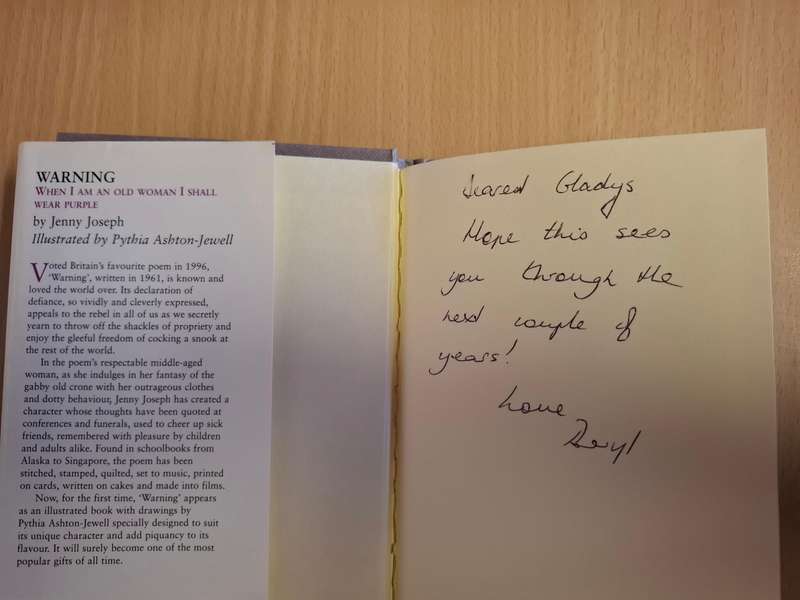 WARNING
WHEN I AM AN OLD WOMAN I SHALL
WEAR PURPLE
by Jenny Joseph
Illustrated by Pythia Ashton-Jewell
Voted Britain's favourite poem in 1996,
'Warning', written in 1961, is known and
loved the world over. Its declaration of
defiance, so vividly and cleverly expressed,
appeals to the rebel in all of us as we secretly
yearn to throw off the shackles of propriety and
enjoy the gleeful freedom of cocking a snook at
the rest of the world.
In the poem's respectable middle-aged
woman, as she indulges in her fantasy of the
gabby old crone with her outrageous clothes
and dotty behaviour, Jenny Joseph has created a
character whose thoughts have been quoted at
conferences and funerals, used to cheer up sick
friends, remembered with pleasure by children
and adults alike. Found in schoolbooks from
Alaska to Singapore, the poem has been
stitched, stamped, quilted, set to music, printed
on cards, written on cakes and made into films.
Now, for the first time, 'Warning' appears
as an illustrated book with drawings by
Pythia Ashton-Jewell specially designed to suit
its unique character and add piquancy to its
flavour. It will surely become one of the most
popular gifts of all time.
Gladys
Hope this sees
you through the
next couple of
years!
Love